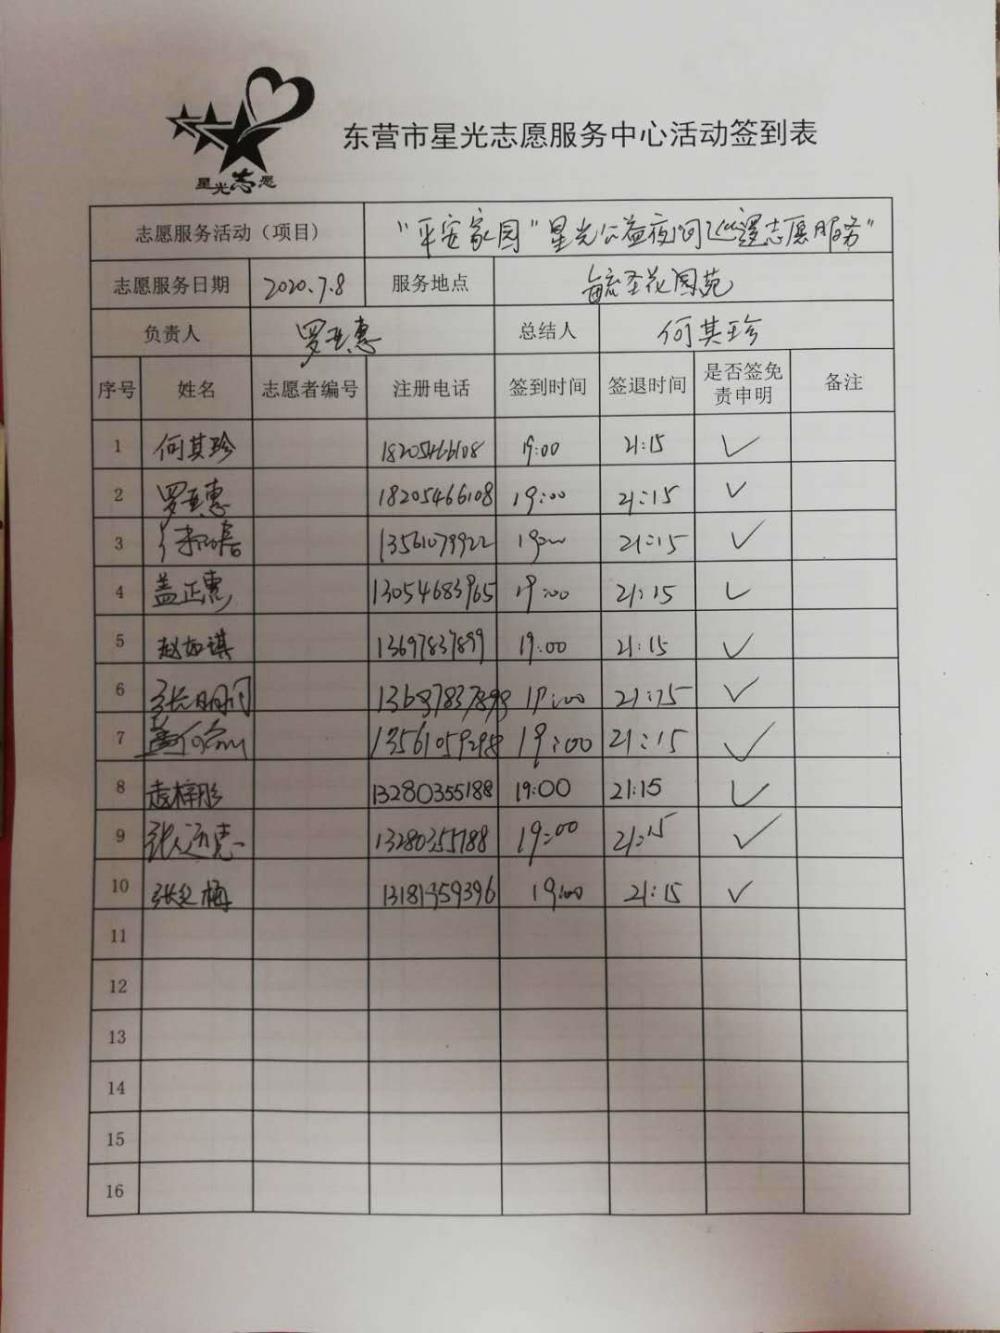 星光志愿
东营市星光志愿服务中心活动签到表
志愿服务活动（项目） “平安家园”星光公益夜间巡逻志愿服务”
志愿服务日期 2020.7.8 服务地点 毓圣花园苑
负责人 罗亚惠 总结人 何其珍
序号 姓名 志愿者编号 注册电话 签到时间 签退时间 是否签免责申明 备注
1 何其珍 18205466108 19:00 21:15 ✓
2 罗亚惠 18205466108 19:00 21:15 ✓
3 13561079922 19:00 21:15 ✓
4 盖正惠 13054683965 19:00 21:15 ✓
5 赵如琪 13697837899 19:00 21:15 ✓
6 张明月 19:00 21:15 ✓
7 13561059298 19:00 21:15 ✓
8 袁梓彤 13280355188 19:00 21:15 ✓
9 13280355188 19:00 21:15 ✓
10 13181959396 19:00 21:15 ✓
11
12
13
14
15
16